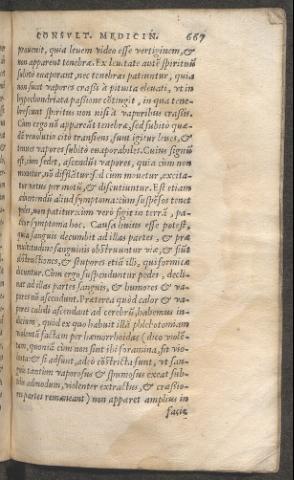 CONSVLT. MEDICIN. 667
prouenit, quia leuem video esse vertiginem, &
non apparent tenebræ. Ex leuitate autē spirituū
subitò euaporant, nec tenebras patiuntur, quia
non sunt vapores crassi à patula eleuati, vt in
hypochondriaca passione cōtingit, in qua tene-
brescunt spiritus non nisi à vaporibus crassis.
Cùm ergo nō appareāt tenebræ, sed subitò qua-
dā reuolutio citò transiens, sunt igitur leues, &
tenues vapores subitò euaporabiles. Cuius signū
est, cùm sedet, ascendūt vapores, quia cùm non
mouetur, nō difflātur: sed cùm mouetur, excita-
tur motus per motū, & discutiuntur. Est etiam
aduertendū aliud symptoma: cùm suspēsos tenet
pedes, non patitur: cùm verò figit in terrā, pa-
titur symptoma hoc. Causa huius esse potest,
quia sanguis decumbit ad illas partes, & præ
multitudine sanguinis obstruuntur viæ, & fiūt
obstructiones, & stupores etiā illi, qui formicæ
dicuntur. Cùm ergo suspenduntur pedes, decli-
nat ad illas partes sanguis, & humores & va-
pores nō ascendunt. Præterea quòd calor & va-
pores calidi ascendant ad cerebrū, habemus in-
dicium, quòd ex quo habuit illā phlebotomiam
factam per hæmorrhoidas (dico violē-
tam, quoniā cùm non sint ibi foramina, fit vio-
lenta: & si adsunt, adeò cōstricta sunt, vt san-
guis tantùm vaporosus & spumosus exeat sub-
tilis admodum, violenter extractus, & crassio-
res partes remaneant) non apparet amplius in
facie